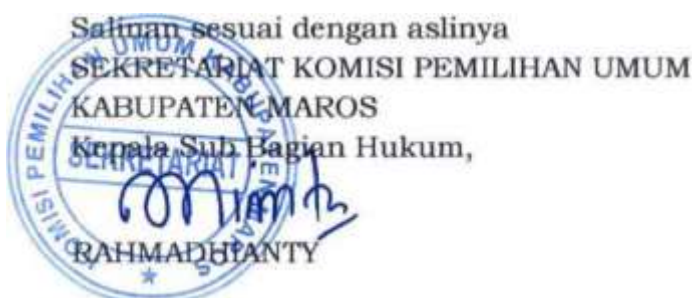 Salinan sesuai dengan aslinya
SEKRETARIAT KOMISI PEMILIHAN UMUM
KABUPATEN MAROS
Kepala Sub Bagian Hukum,
KOMISI PEMILIHAN UMUM KABUPATEN MAROS
SEKRETARIAT
RAHMADHIANTY